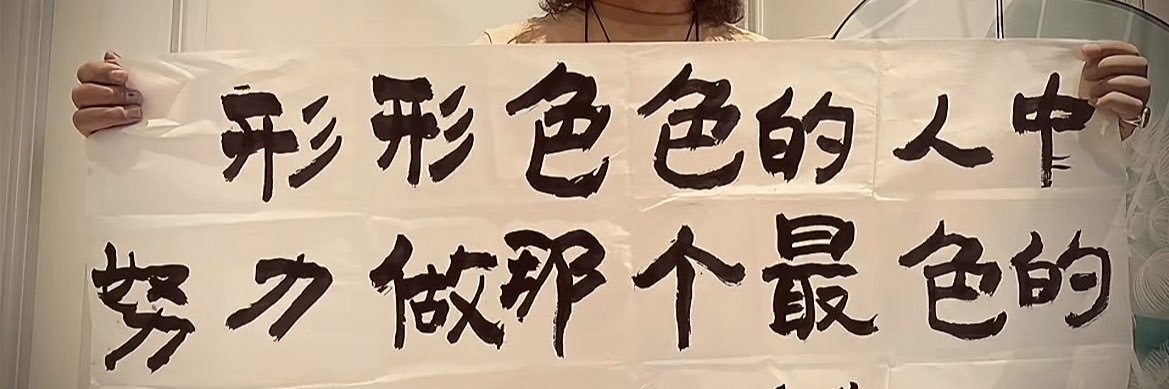 形形色色的人中
努力做那个最色的